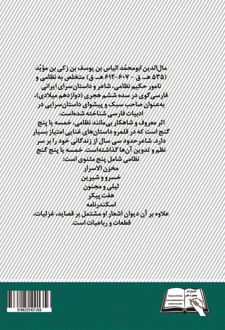 مال‌الدین ابومحمّد الیاس بن یوسف بن زکی بن مؤیّد
(۵۳۵ هـ ق - ۶۰۷-۶۱۲ هـ ق) متخلص به نظامی و
نامور حکیم نظامی، شاعر و داستان‌سرای ایرانی
فارسی‌گوی در سده ششم هجری (دوازدهم میلادی)،
به‌عنوان صاحب سبک و پیشوای داستان‌سرایی در
ادبیات فارسی شناخته شده‌است.
اثر معروف و شاهکار بی‌مانند نظامی، خمسه یا پنج
گنج است که در قلمرو داستان‌های غنایی امتیاز بسیار
دارد. شاعر حدود سی سال از زندگانی خود را بر سر
نظم و تدوین آن‌ها گذاشته‌است. خمسه یا پنج گنج
نظامی شامل پنج مثنوی است:
مخزن الاسرار
خسرو و شیرین
لیلی و مجنون
هفت پیکر
اسکندرنامه
علاوه بر آن دیوان اشعار او مشتمل بر قصاید، غزلیات،
قطعات و رباعیات است.